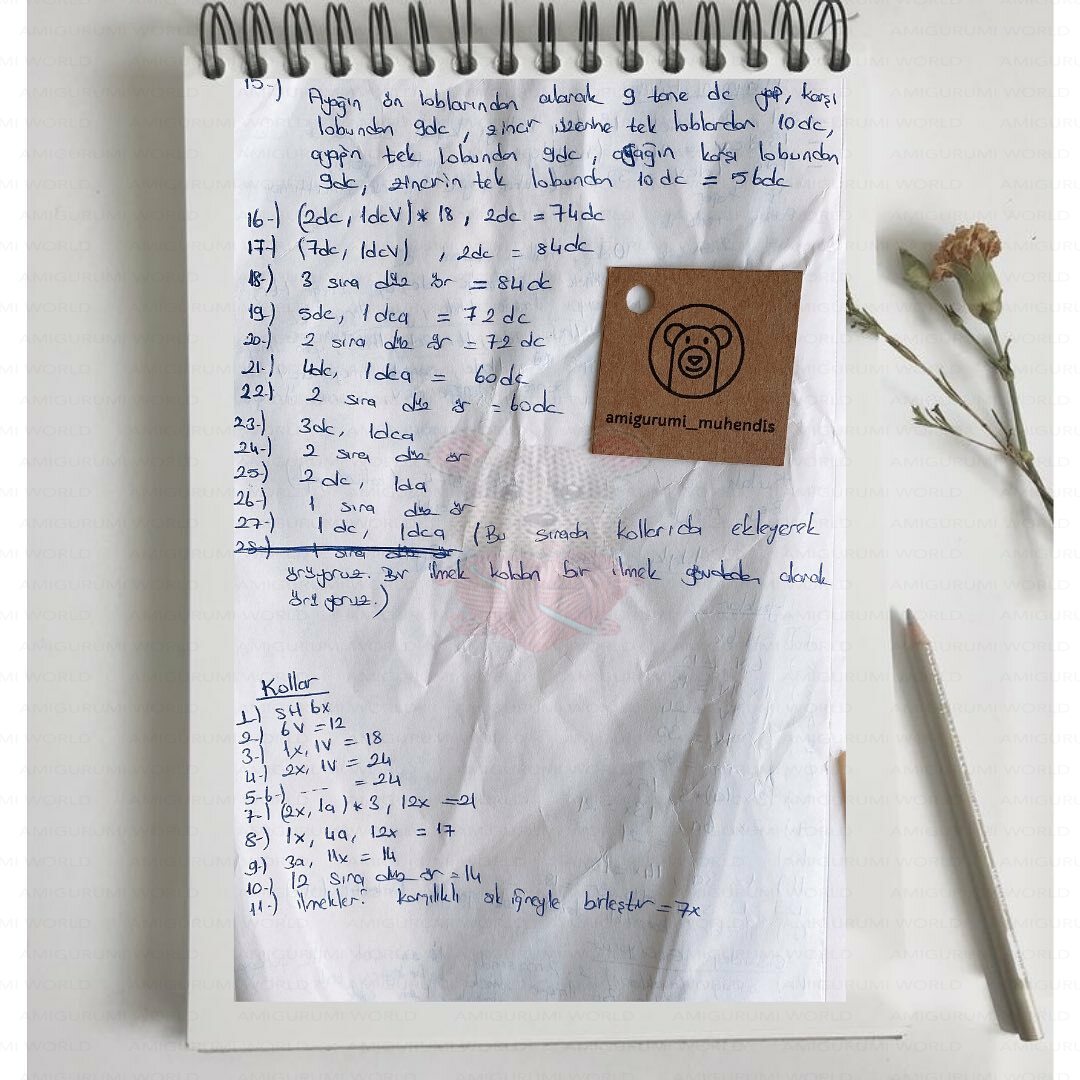 15-)
Ayağın ön loblarından alarak 9 tane dc yap, karşı
lobundan 9dc, zincir üzerine tek loblardan 10dc,
ayağın tek lobundan 9dc, ayağın karşı lobundan
9dc, zincirin tek lobundan 10 dc = 56dc
16-) (2dc, 1dcV) * 18, 2dc = 74dc
17-) (7dc, 1dcV) , 2dc = 84dc
18-) 3 sıra düz ör = 84dc
19-) 5dc, 1dca = 72dc
20-) 2 sıra düz ör = 72 dc
21-) 4dc, 1dca = 60dc
22-) 2 sıra düz ör = 60dc
23-) 3dc, 1dca
24-) 2 sıra düz ör
25-) 2 dc, 1da
26-) 1 sıra düz ör
27-) 1 dc, 1dca (Bu sırada kollarıda ekleyerek
28-) 1 sıra düz ör
örüyoruz. Bir ilmek koldan bir ilmek gövdeden alarak
örüyoruz.)
amigurumi_muhendis
Kollar
1-) SH 6x
2-) 6V = 12
3-) 1x, 1V = 18
4-) 2x, 1V = 24
5-6-) ---- = 24
7-) (2x, 1a) * 3, 12x = 21
8-) 1x, 4a, 12x = 17
9-) 3a, 11x = 14
10-) 12 sıra düz ör = 14
11-) ilmekleri karşılıklı sık iğneyle birleştir = 7x
AMIGURUMI WORLD